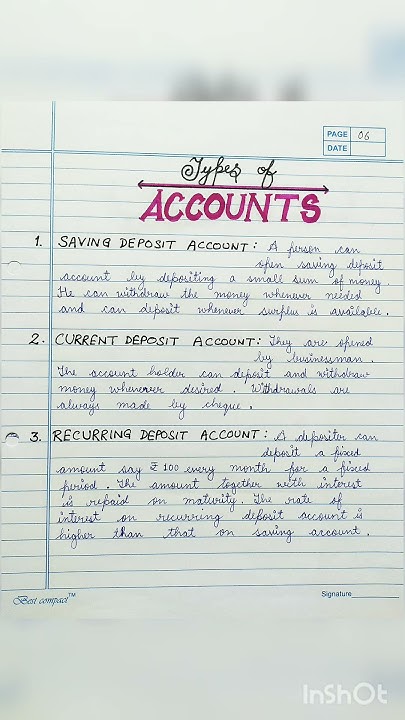 PAGE 06
DATE
Types of
ACCOUNTS
1. SAVING DEPOSIT ACCOUNT: A person can
open saving deposit
account by depositing a small sum of money.
He can withdraw the money whenever needed
and can deposit whenever surplus is available.
2. CURRENT DEPOSIT ACCOUNT: They are opened
by businessman.
The account holder can deposit and withdraw
money whenever desired. Withdrawals are
always made by cheque.
3. RECURRING DEPOSIT ACCOUNT: A depositer can
deposit a fixed
amount say ₹ 100 every month for a fixed
period. The amount together with interest
is repaid on maturity. The rate of
interest on recurring deposit account is
higher than that on saving account.
Best compact™
Signature
InShOt